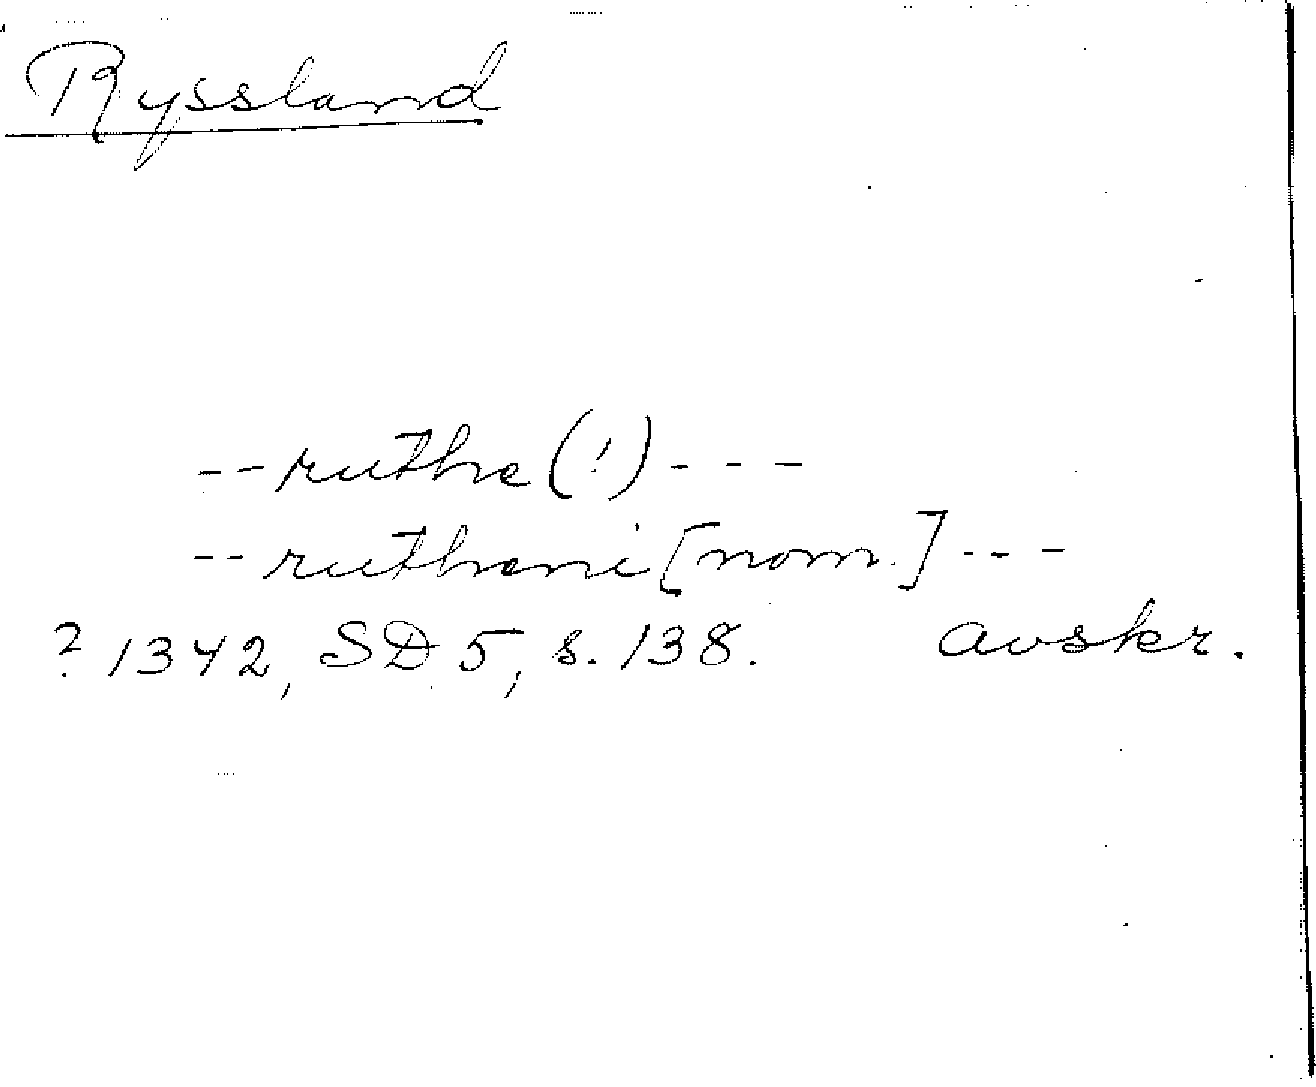 Ryssland
--ruthe(!)---
--rutheni[nom.]---
? 1342, SD 5, s. 138. avskr.